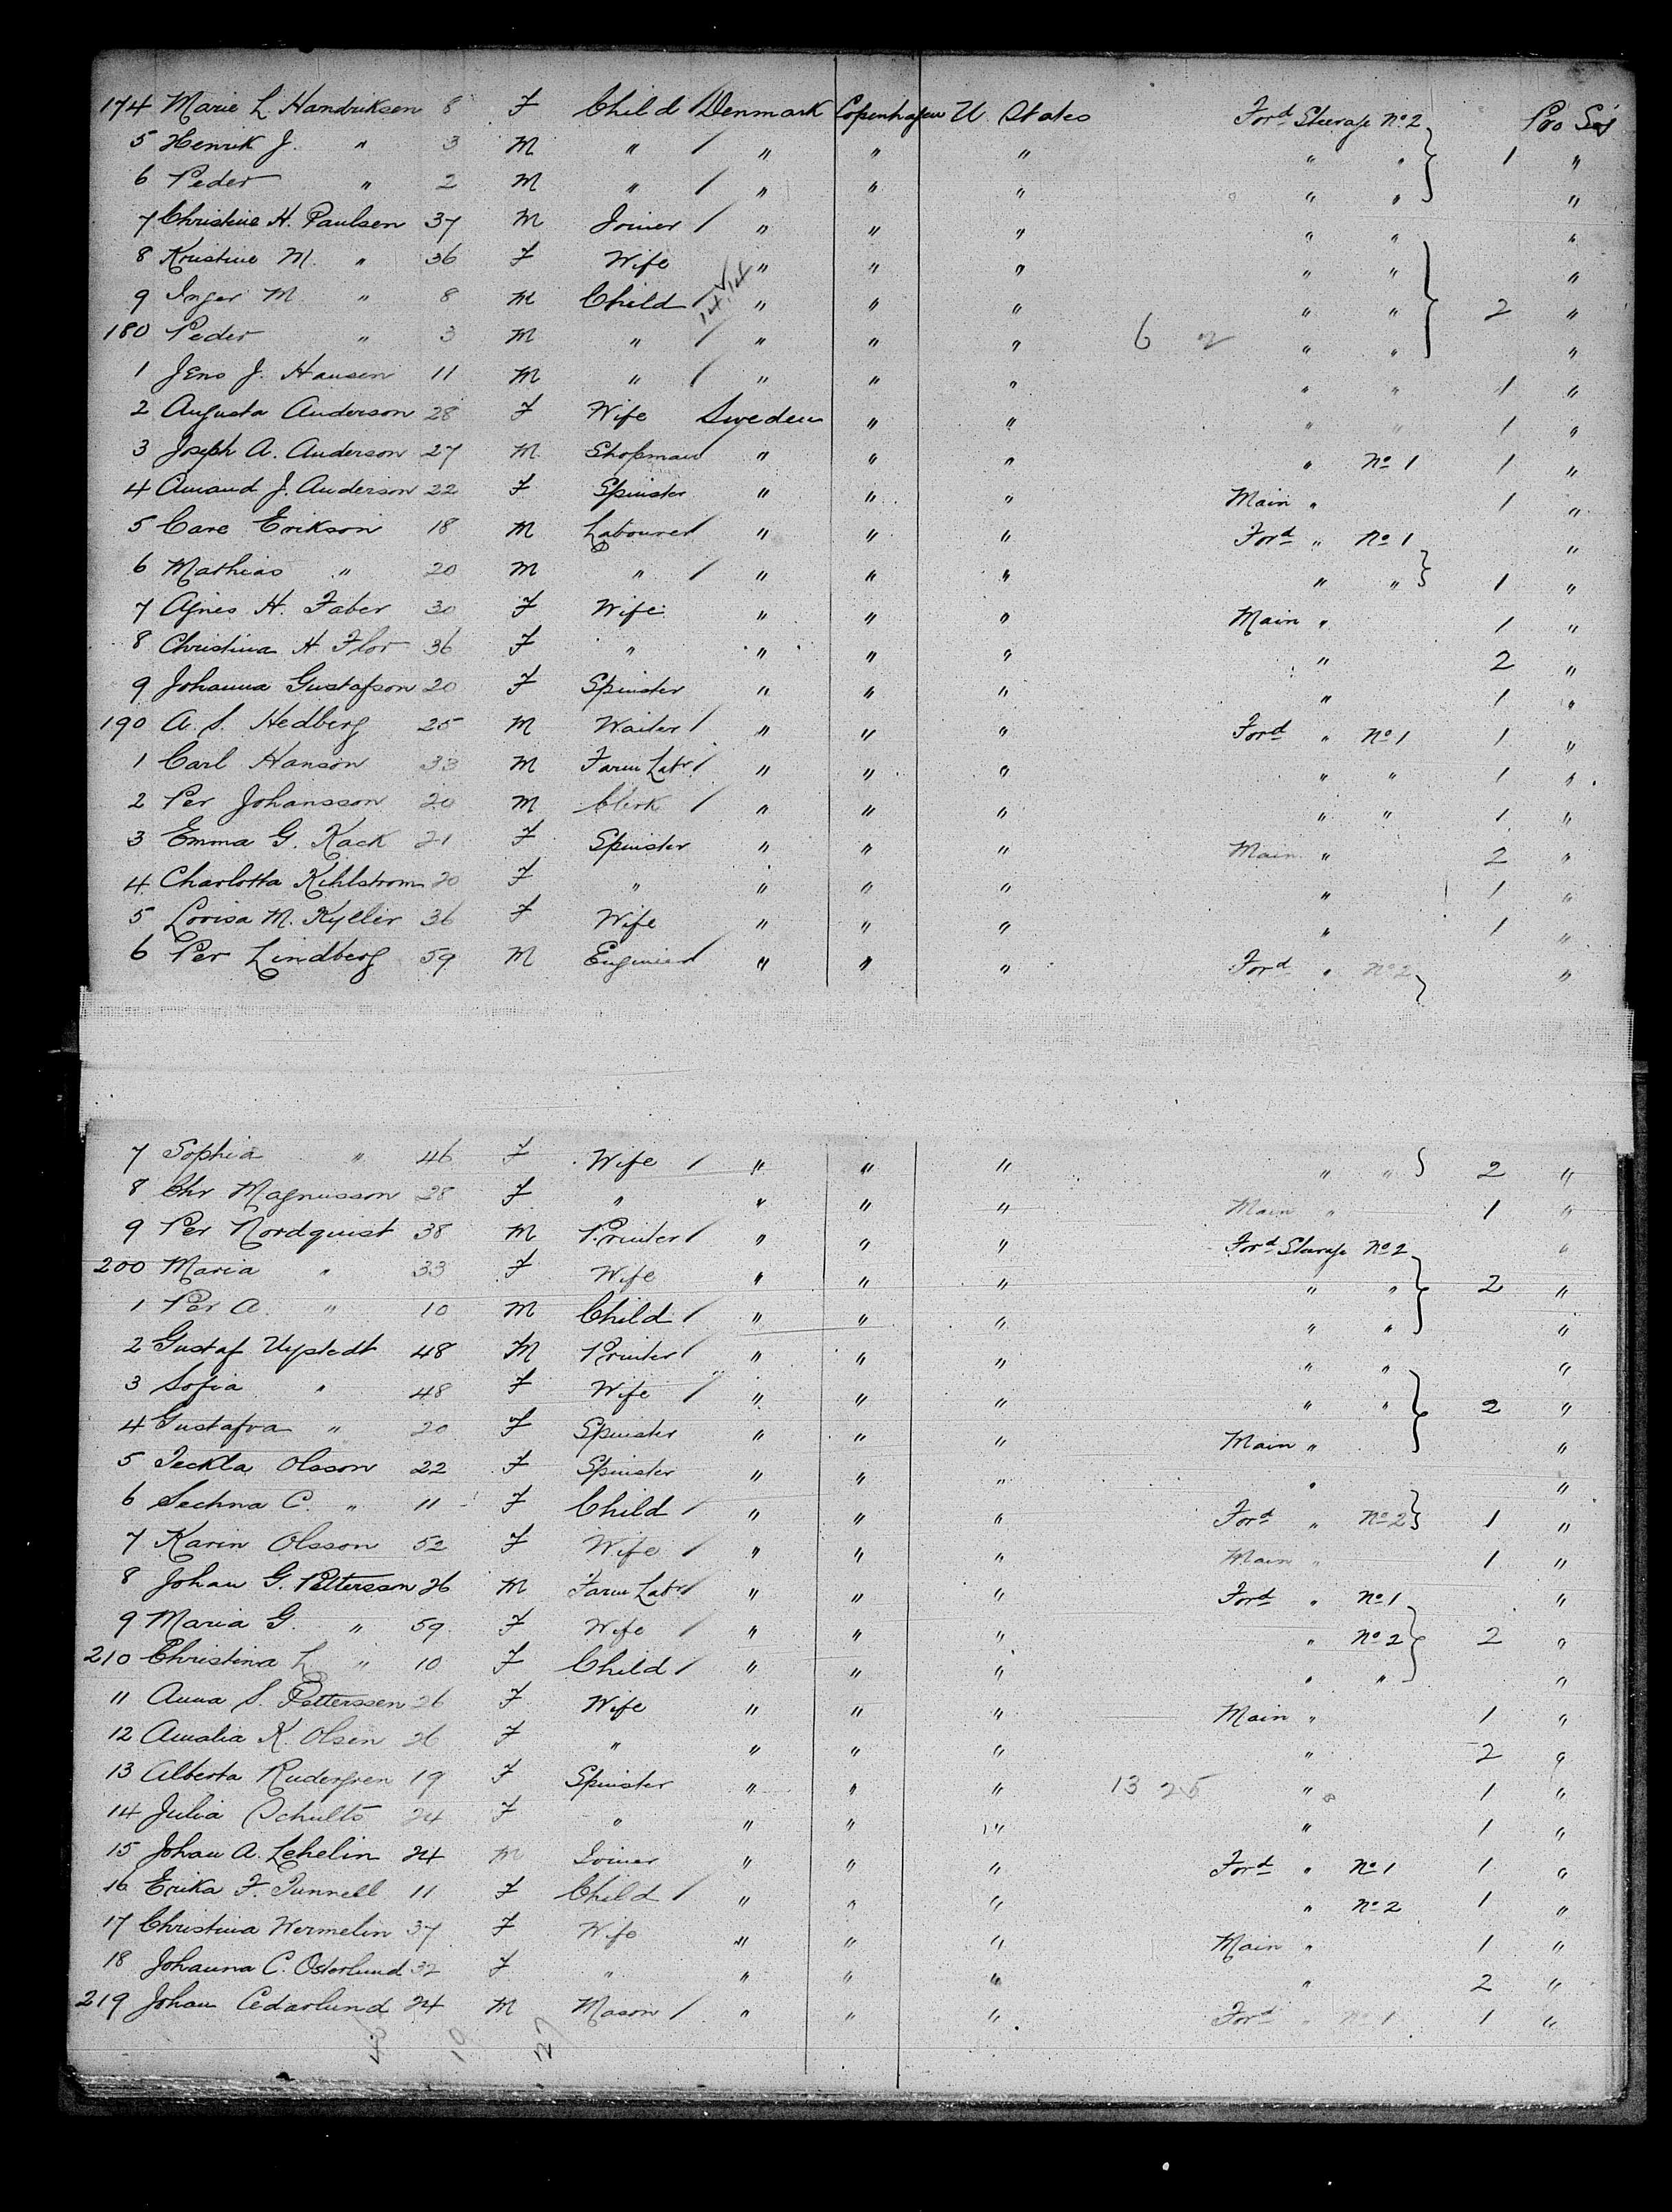 174 Marie L. Handriksen 8 F Child / Denmark Copenhagen U States Ford Steerage No 2 Pro Soj
5 Henrik J. " 3 M " / " " " " " 1 "
6 Peder " 2 M " / " " " " " "
7 Christine H. Paulsen 37 M Joiner / " " " " " "
8 Kristine M. " 36 F Wife " " " " " "
9 Inger M " 8 M Child / " " " " " 2 "
180 Peder " 3 M " / " " " 6 2 " " "
1 Jens J. Hansen 11 M " / " " " " " 1 "
2 Augusta Anderson 28 F Wife Sweden " " " " 1 "
3 Joseph A. Anderson 27 M Shopman " " " " No 1 1 "
4 Amand J. Anderson 22 F Spinster " " " Main " 1 "
5 Care Erikson 18 M Labourer / " " " Ford " No 1 "
6 Mathias " 20 M " / " " " " " 1 "
7 Agnes H. Faber 30 F Wife " " " Main " 1 "
8 Christina H. Flor 36 F " " " " " 2 "
9 Johanna Gustafson 20 F Spinster " " " " 1 "
190 A. S. Hedberg 25 M Waiter / " " " Ford " No 1 1 "
1 Carl Hanson 33 M Farm Labr / " " " " " 1 "
2 Per Johansson 20 M Clerk / " " " " " 1 "
3 Emma G. Kack 21 F Spinster " " " Main " 2 "
4 Charlotta Kihlstrom 20 F " " " " " 1 "
5 Lovisa M. Kyller 36 F Wife " " " " 1 "
6 Per Lindberg 59 M Engineer / " " " Ford " No 2 "
7 Sophia " 46 F Wife / " " " " " 2 "
8 Chr Magnusson 28 F " " " " Main " 1 "
9 Per Nordquist 38 M Printer / " " " Ford Steerage No 2 "
200 Maria " 33 F Wife " " " " " 2 "
1 Per A. " 10 M Child / " " " " " "
2 Gustaf Uystedt 48 M Printer / " " " " " "
3 Sofia " 48 F Wife / " " " " " 2 "
4 Gustafva " 20 F Spinster " " " Main " "
5 Teckla Olsson 22 F Spinster " " " " "
6 Sechna C. " 11 F Child / " " " Ford " No 2 1 "
7 Karin Olsson 52 F Wife / " " " Main " 1 "
8 Johan G. Pettersson 26 M Farm Labr / " " " Ford " No 1 "
9 Maria G. " 59 F Wife / " " " " No 2 2 "
210 Christina L. " 10 F Child / " " " " " "
11 Anna S. Petterssen 26 F Wife " " " Main " 1 "
12 Amalia K. Olsen 26 F " " " " " 2 "
13 Alberta Rudergren 19 F Spinster " " " 13 25 " 1 "
14 Julia Schults 24 F " " " " " 1 "
15 Johan A. Lehelin 24 M Joiner " " " Ford " No 1 1 "
16 Erika F. Tunnell 11 F Child / " " " " No 2 1 "
17 Christina Wermelin 37 F Wife " " " Main " 1 "
18 Johanna C. Osterlund 32 F " " " " " 2 "
219 Johan Cedarlund 24 M Mason / " " " Ford " No 1 1 "